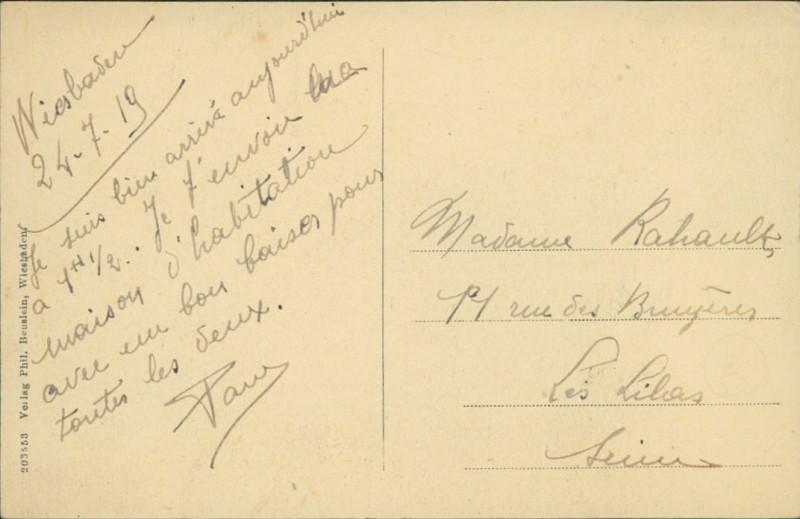 Wiesbaden
24-7-19
Je suis bien arrivé aujourd'hui
a 7H 1/2. Je t'envoie ma
maison d'habitation
avec un bon baiser pour
toutes les deux.
Madame Rahault
rue des Bruyères
Les Lilas
Seine
203553 Verlag Phil. Beuslein, Wiesbaden.